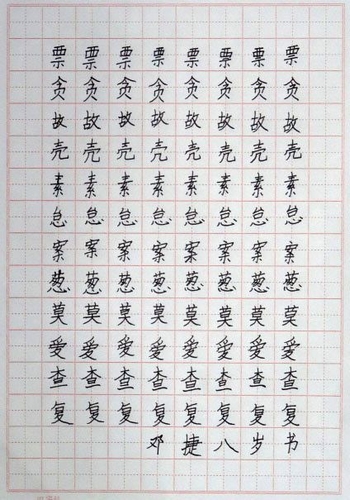 票票票票票票票票
贪贪贪贪贪贪贪贪
故故故故故故故故
壳壳壳壳壳壳壳壳
素素素素素素素素
怠怠怠怠怠怠怠怠
案案案案案案案案
葱葱葱葱葱葱葱葱
莫莫莫莫莫莫莫莫
爱爱爱爱爱爱爱爱
查查查查查查查查
复复复复复复复复
邓捷八岁书